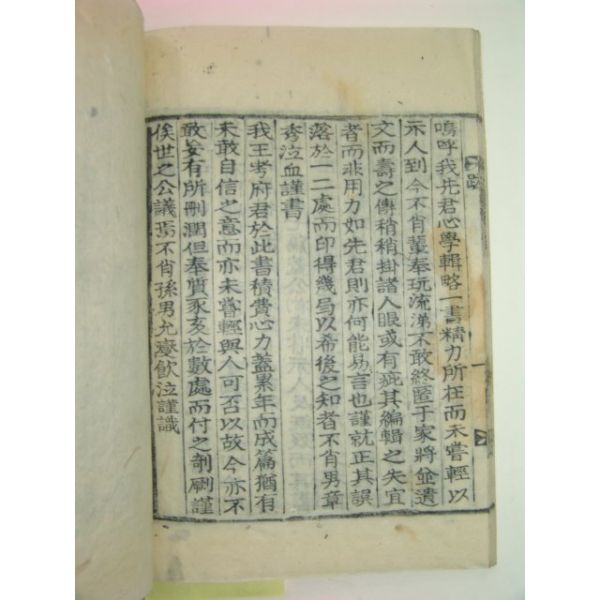 嗚呼我先君心學輯略一書精力所在而未嘗輕以
示人到今不肖輩奉玩流涕不敢終匿于家將並遺
文而壽之傳稍稍掛諸人眼或有疵其編輯之失宜
者而非用力如先君則亦何能易言也謹就正其誤
落於一二處而印得幾局以希後之知者不肖男章
秀泣血謹書
我王考府君於此書積費心力蓋累年而成篇猶有
未敢自信之意而亦未嘗輕與人可否以故今亦不
敢妄有所刪潤但奉質豕亥於數處而付之剞劂謹
俟世之公議焉不肖孫男允飮泣謹識
跋
一